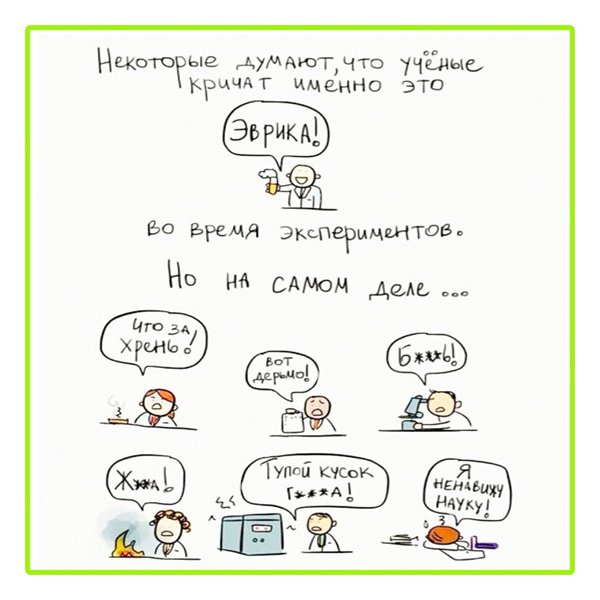 Некоторые думают, что учёные
кричат именно это
Эврика!
во время экспериментов.
Но на самом деле...
Что за
хрень!
Вот
дерьмо!
Б***ь!
Ж**а!
Тупой кусок
г***а!
Я
ненавижу
науку!